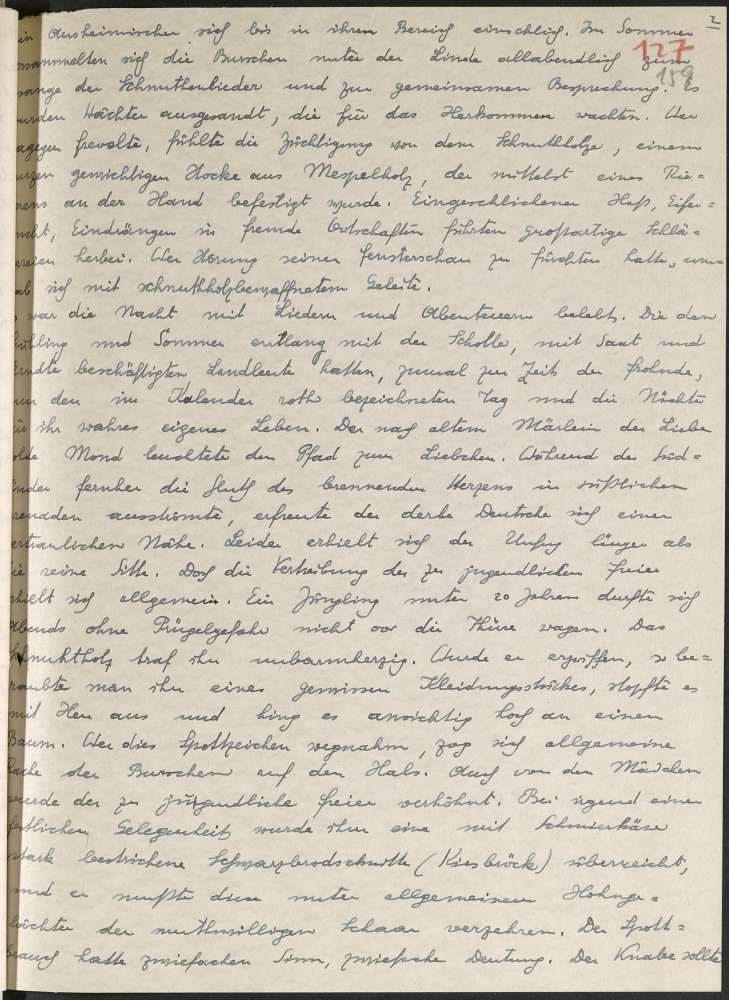 2
127
159
ein Ausheimischer sich bis in ihren Bereich einschlich. Im Sommer
sammelten sich die Burschen unter der Linde allabendlich zum
sange der Schnuthenlieder und zur gemeinsamen Besprechung. Es
urden Wächter ausgesandt, die für das Herkommen wachten. Wer
agegen frevelte, fühlte die Züchtigung von dem Schnuthholze, einem
urzen gewichtigen Stocke aus Mespelholz, der mittelst eines Rie=
mens an der Hand befestigt wurde. Eingeschlichener Haß, Eifer=
ucht, Eindrängen in fremde Ortschaften führten großartige Schlä=
ereien herbei. Wer Störung seiner Fensterschau zu fürchten hatte, um=
ab sich mit schnuthholzbewaffnetem Geleite.
war die Nacht mit Liedern und Abenteuern belebt. Die den
rühling und Sommer entlang mit der Scholle, mit Saat und
Erndte beschäftigten Landleute hatten, zumal zur Zeit der Frohnde,
nur den im Kalender roth bezeichneten Tag und die Nächte
für ihr wahres eigenes Leben. Der nach altem Märlein der Liebe
olde Mond leuchtete den Pfad zum Liebchen. Während der Süd=
änder fernher die Gluth des brennenden Herzens in süßlichen
enaden ausströmte, erfreute der derbe Deutsche sich einer
ertraulichen Nähe. Leider erhielt sich der Unfug länger als
die reine Sitte. Doch die Vertreibung der zu jugendlichen Freier
erhielt sich allgemein. Ein Jüngling unter 20 Jahren durfte sich
Abends ohne Prügelgefahr nicht vor die Thüre wagen. Das
Schnuthholz traf ihn unbarmherzig. Wurde er ergriffen, so be=
raubte man ihn eines gewissen Kleidungsstückes, stopfte es
mit Heu aus und hing es ansichtig hoch an einen
Baum. Wer dies Spottzeichen wegnahm, zog sich allgemeine
Rache der Burschen auf den Hals. Auch von den Mädchen
wurde der zu jugendliche Freier verhöhnt. Bei irgend einer
festlichen Gelegenheit wurde ihm eine mit Schmierkäse
stark bestrichene Schwarzbrodschnitte (Kiesbröck) überreicht,
und er mußte diese unter allgemeinem Hohnge=
lächter der muthwilligen Schaar verzehren. Der Spott=
brauch hatte zwiefachen Sinn, zwiefache Deutung. Der Knabe sollte